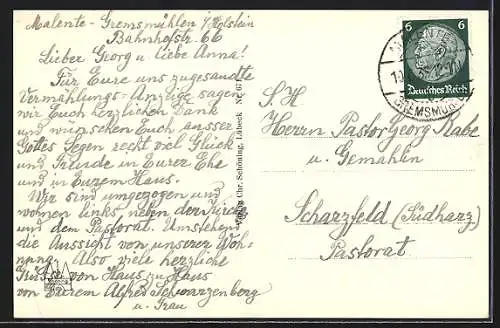 Malente-Gremsmühlen i/Holstein
Bahnhofstr. 66
Lieber Georg u. liebe Anna!
Für Eure uns zugesandte
Vermählungs-Anzeige sagen
wir Euch herzlichen Dank
und wünschen Euch ausser
Gottes Segen recht viel Glück
und Freude in Eurer Ehe
und in Eurem Haus.
Wir sind umgezogen und
wohnen links neben der Kirche
und dem Pastorat. Umstehend
die Aussicht von unserer Woh-
nung. Also viele herzliche
Grüsse von Haus zu Haus
von Eurem Alfred Schwarzenberg
u. Frau
Chr. Schöning, Lübeck
6
6
Deutsches Reich
GREMSMÜHLEN
S. H
Herrn Pastor Georg Rabe
u. Gemahlin
Scharzfeld (Südharz)
Pastorat